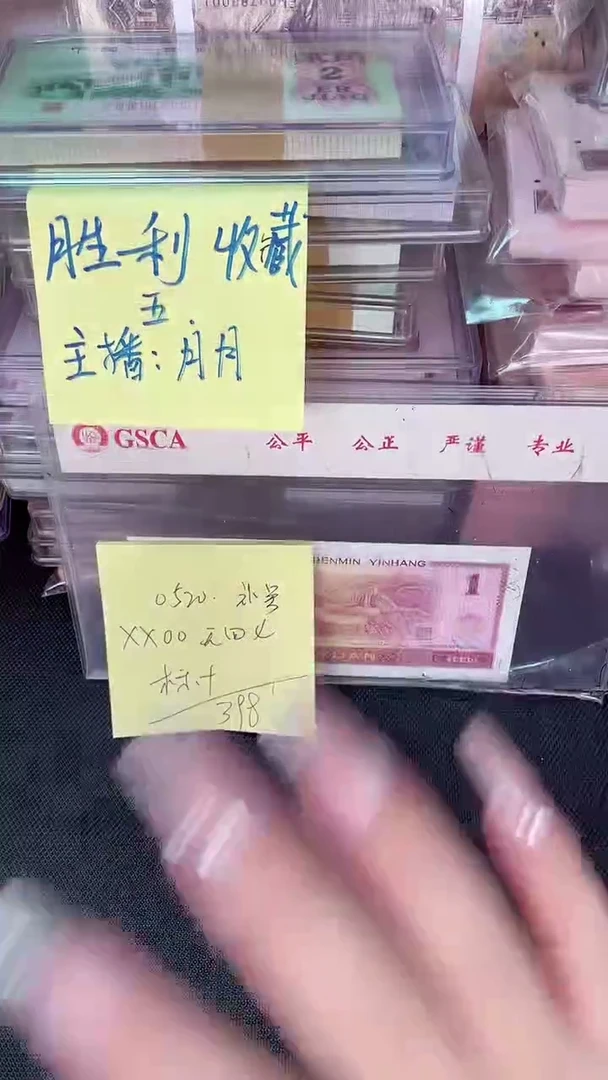 2
胜利收藏
五
主播:月月
GSCA 公平 公正 严谨 专业
RENMIN YINHANG
1
0520. 补号
XX00 无四七
标十
398